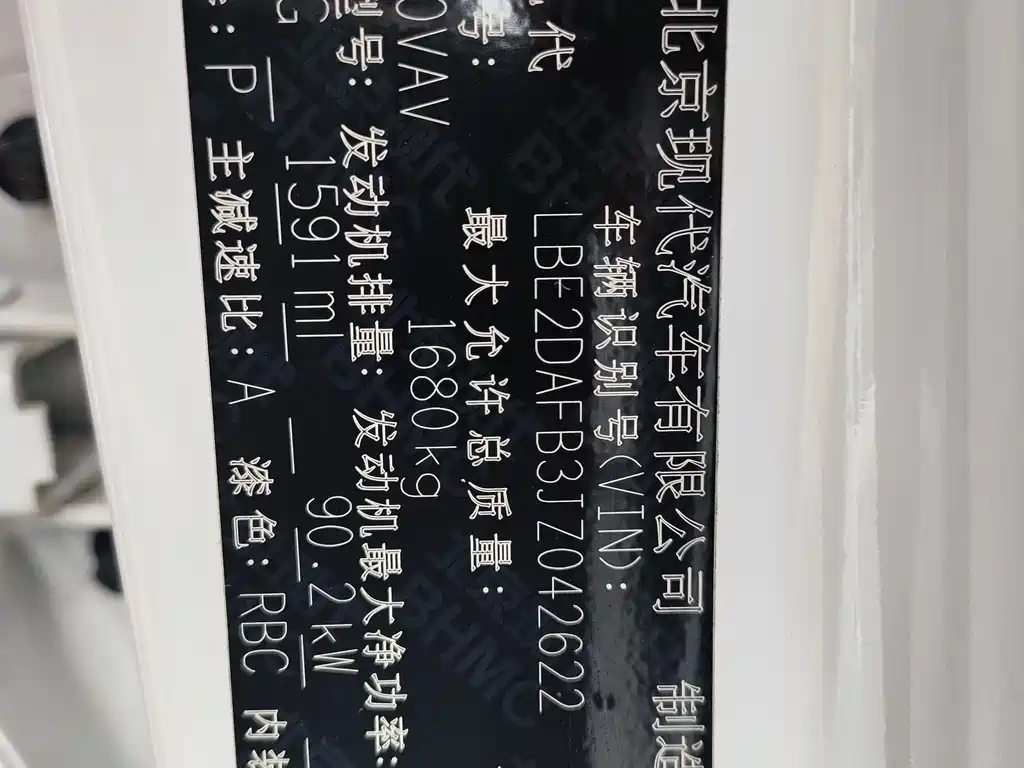 北京现代汽车有限公司 制造
车辆识别号(VIN):
LBE2DAFB3JZ042622
代
号: 最大允许总质量:
0VAV 1680kg
型号: 发动机排量: 发动机最大净功率:
G 1591ml 90.2kW
: P 主减速比: A 漆色: RBC 内装